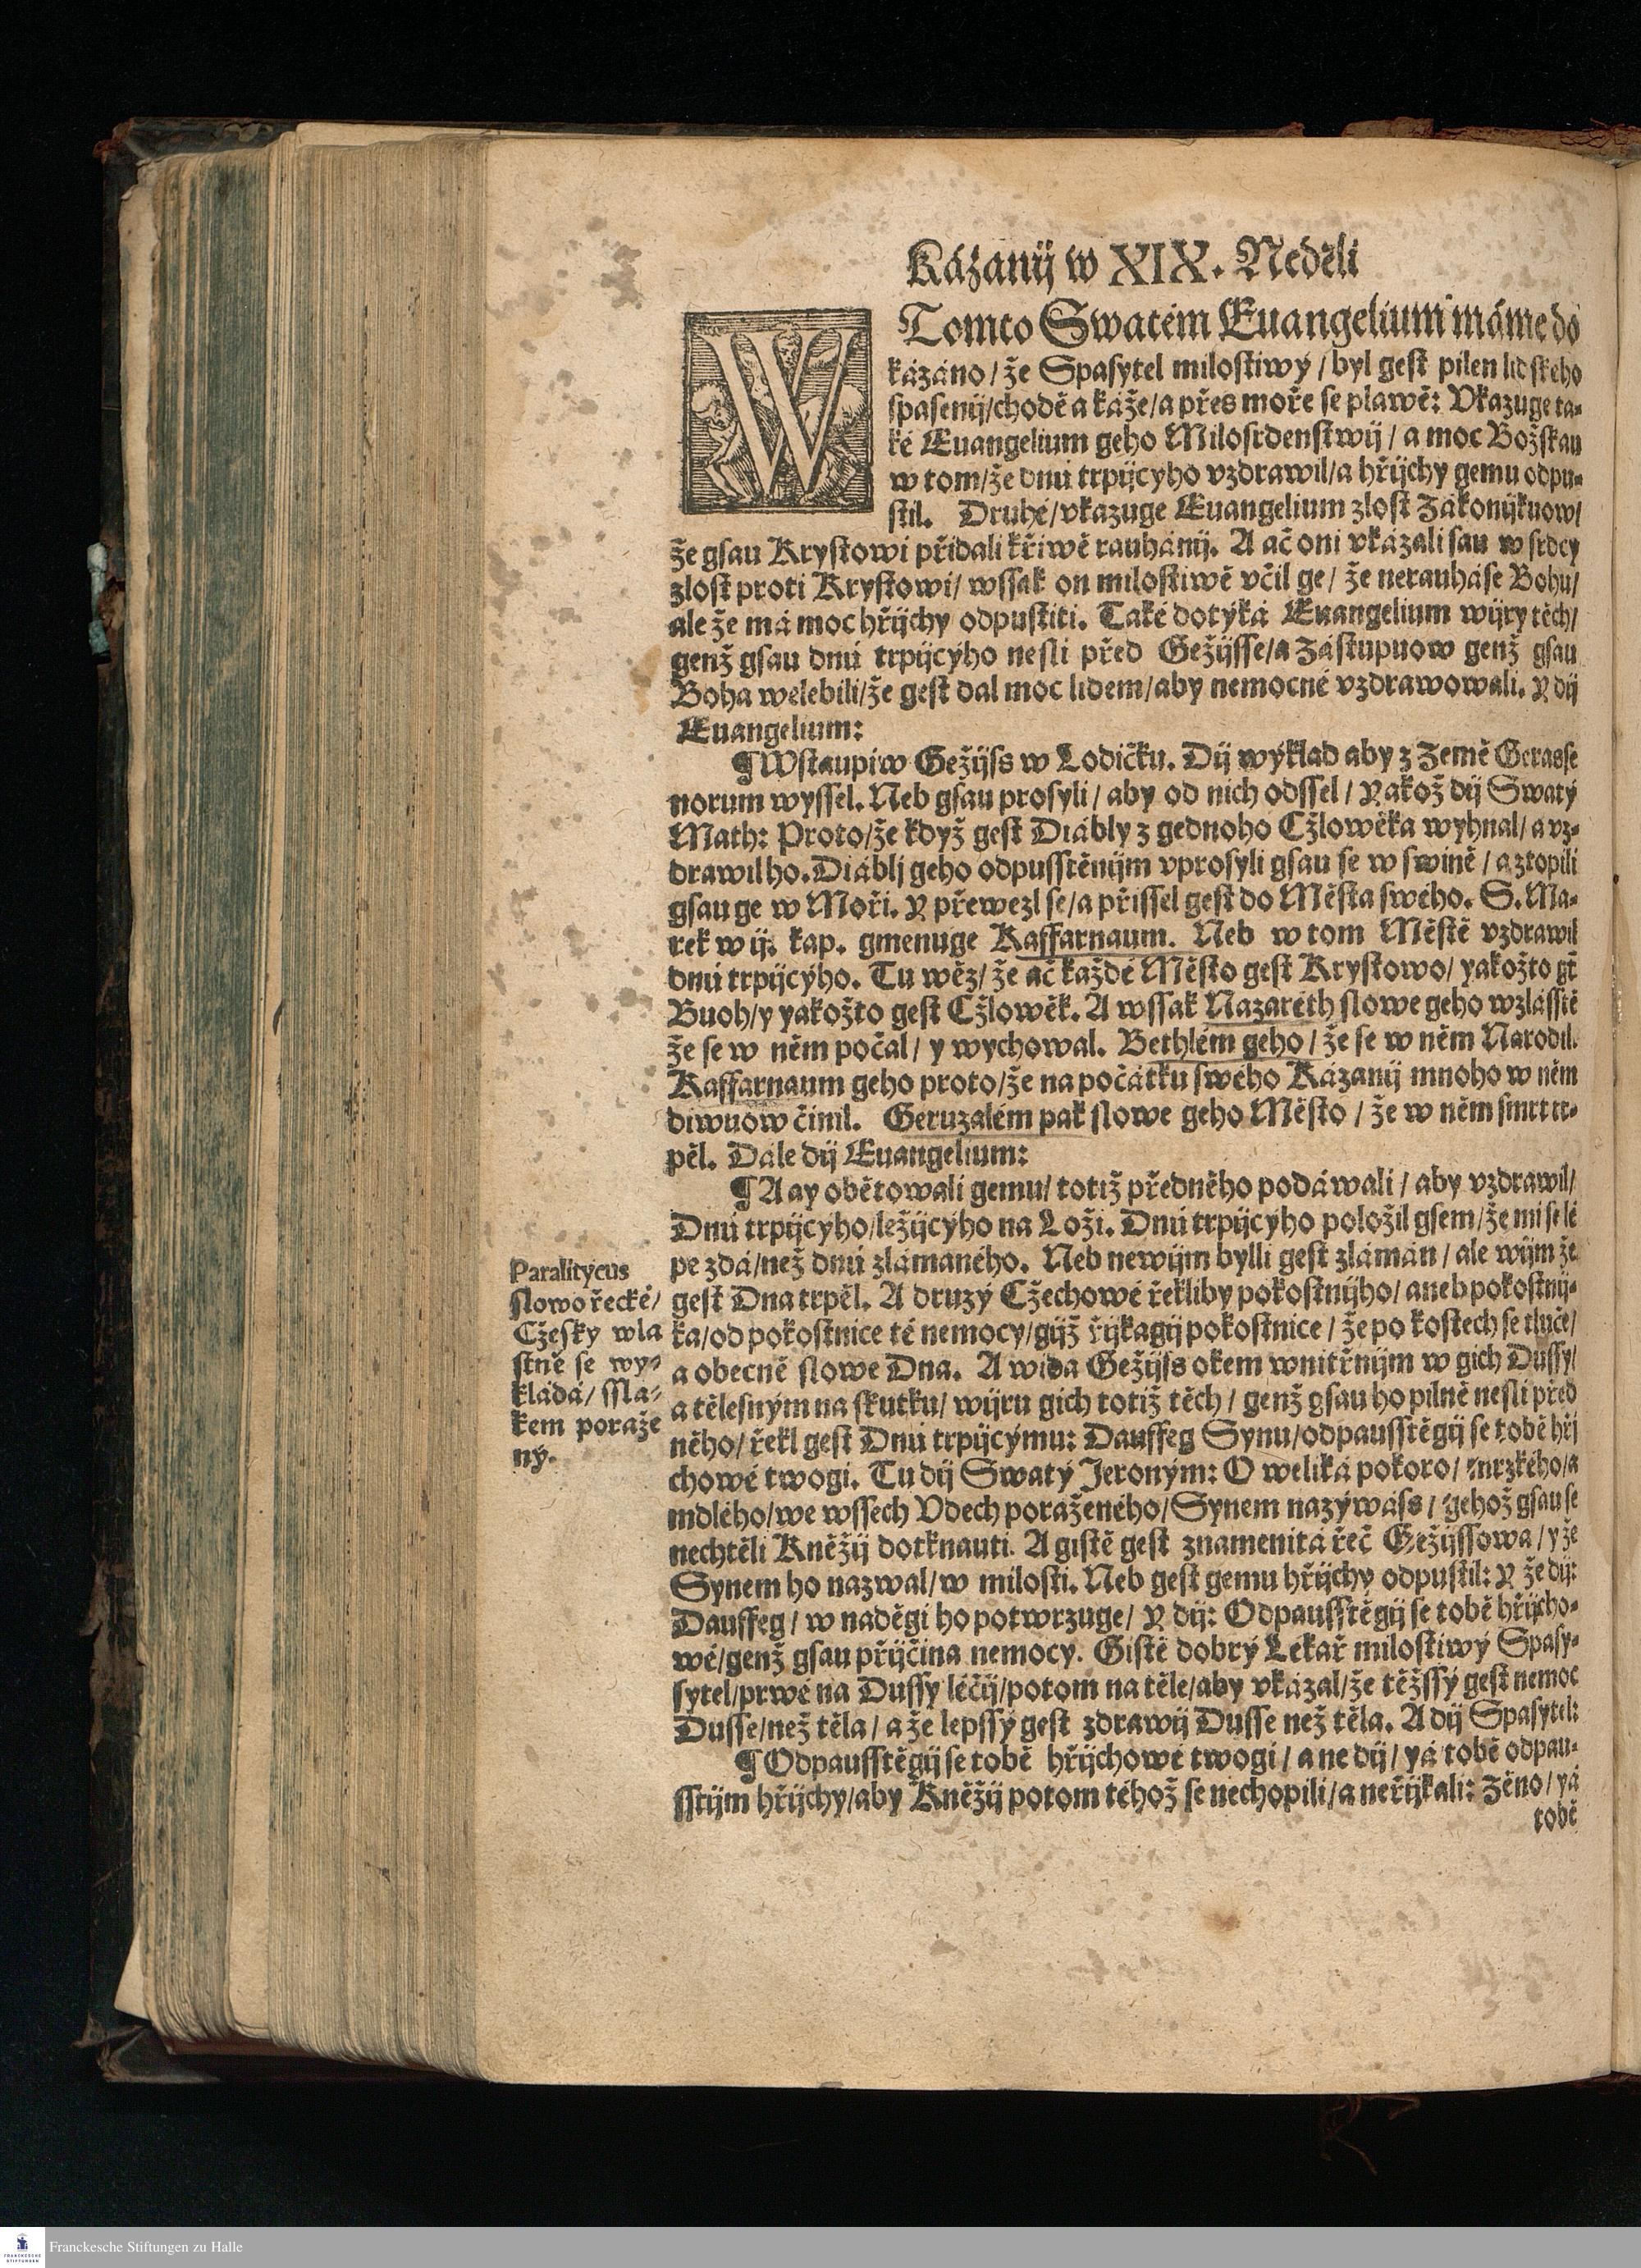 Kázanij w XIX. Neděli
W Tomto Swatém Euangelium máme do
kázáno / že Spasytel milostiwý / byl gest pilen lidského
spasenij / chodě a káže / a přes moře se plawě: Vkazuge ta-
ké Euangelium geho Milosrdenstwij / a moc Božskau
w tom / že dnú trpijcyho vzdrawil / a hřijchy gemu odpu-
stil. Druhé / vkazuge Euangelium zlost Zákonijkuow /
že gsau Krystowi přidali křiwě rauhánij. A ač oni vkázali sau w srdcy
zlost proti Krystowi / wssak on milostiwě včil ge / že nerauháse Bohu /
ale že má moc hřijchy odpustiti. Také dotýká Euangelium wijry těch /
genž gsau dnú trpijcýho nesli před Gežijsse / a Zástupuow genž gsau
Boha welebili / že gest dal moc lidem / aby nemocné vzdrawowali. Y dij
Euangelium:
¶ Wstaupiw Gežijss w Lodičku. Dij wýklad aby z Země Gerasse
norum wyssel. Neb gsau prosyli / aby od nich odssel / Yakož dij Swatý
Math: Proto / že když gest Diábly z gednoho Cžlowěka wyhnal / a vz-
drawil ho. Diáblj geho odpusstěnijm vprosyli gsau se w swině / a ztopili
gsau ge w Moři. Y přewezl se / a přissel gest do Města swého. S. Ma-
rek w ij. kap. gmenuge Kaffarnaum. Neb w tom Městě vzdrawil
dnú trpijcýho. Tu wěz / že ač každé Město gest Krystowo / yakožto gt
Buoh / y yakožto gest Cžlowěk. A wssak Nazareth slowe geho wzlásstě
že se w něm počal / y wychowal. Bethlém geho / že se w něm Narodil.
Kaffarnaum geho proto / že na počátku swého Kázanij mnoho w něm
diwuow činil. Geruzalém pak slowe geho Město / že w něm smrt tr-
pěl. Dále dij Euangelium:
¶ A ay obětowali gemu / totiž předněho podáwali / aby vzdrawil /
Dnú trpijcýho / ležijcýho na Loži. Dnú trpijcýho položil gsem / že mi se lé
pe zdá / než dnú zlámaného. Neb newijm bylli gest zlámán / ale wijm že
gest Dna trpěl. A druzý Cžechowé řekliby pokostnijho / aneb pokostnij-
ka / od pokostnice té nemocy / gijž řijkagij pokostnice / že po kostech se tluče /
a obecně slowe Dna. A wida Gežijss okem wnitřnijm w gich Dussy /
a tělesným na skutku / wijru gich totiž těch / genž gsau ho pilně nesli před
něho / řekl gest Dnú trpijcýmu: Dauffeg Synu / odpausstěgij se tobě hřj
chowé twogi. Tu dij Swatý Jeroným: O weliká pokoro / mrzkého / a
mdlého / we wssech Vdech poraženého / Synem nazýwáss / gehož gsau se
nechtěli Kněžij dotknauti. A gistě gest znamenitá řeč Gežijssowa / y že
Synem ho nazwal / w milosti. Neb gest gemu hřijchy odpustil: Y že dij:
Dauffeg / w naděgi ho potwrzuge / Y dij: Odpausstěgij se tobě hřijcho-
wé / genž gsau přijčina nemocy. Gistě dobrý Lekař milostiwý Spasy-
sytel / prwé na Dussy léčij / potom na těle / aby vkázal / že těžssý gest nemoc
Dusse / než těla / a že lepssý gest zdrawij Dusse než těla. A dij Spasytel:
¶ Odpausstěgij se tobě hřijchowé twogi / a ne dij / yá tobě odpau-
sstijm hřijchy / aby Kněžij potom téhož se nechopili / a neřijkali: Zéno / yá
tobě
Paralitycus
slowo řecké /
Cžesky wla
stně se wy-
kládá / ssla-
kem poraže
ný.
Franckesche Stiftungen zu Halle